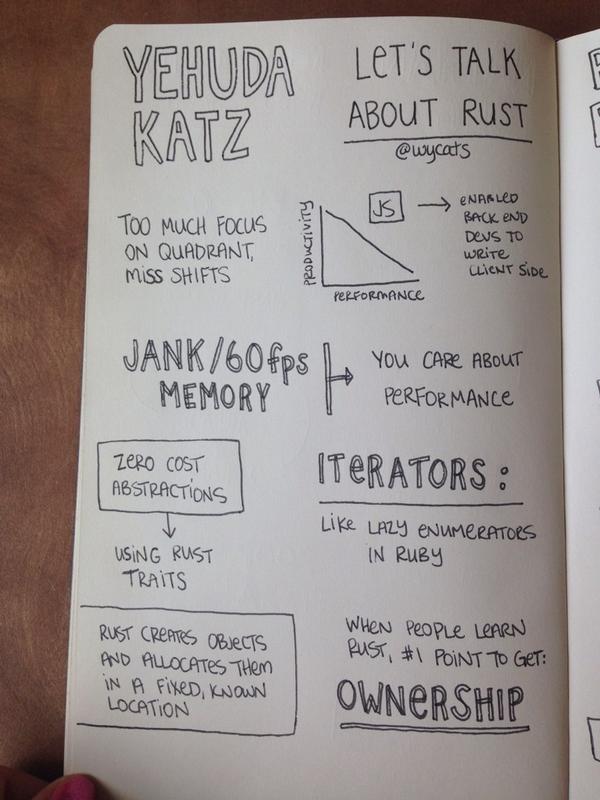 YEHUDA
KATZ
LET'S TALK
ABOUT RUST
@wycats
TOO MUCH FOCUS
ON QUADRANT,
MISS SHIFTS
PRODUCTIVITY
PERFORMANCE
JS
ENABLED
BACK END
DEVS TO
WRITE
CLIENT SIDE
JANK/60fps
MEMORY
YOU CARE ABOUT
PERFORMANCE
ZERO COST
ABSTRACTIONS
USING RUST
TRAITS
ITERATORS:
LIKE LAZY ENUMERATORS
IN RUBY
RUST CREATES OBJECTS
AND ALLOCATES THEM
IN A FIXED, KNOWN
LOCATION
WHEN PEOPLE LEARN
RUST, #1 POINT TO GET:
OWNERSHIP